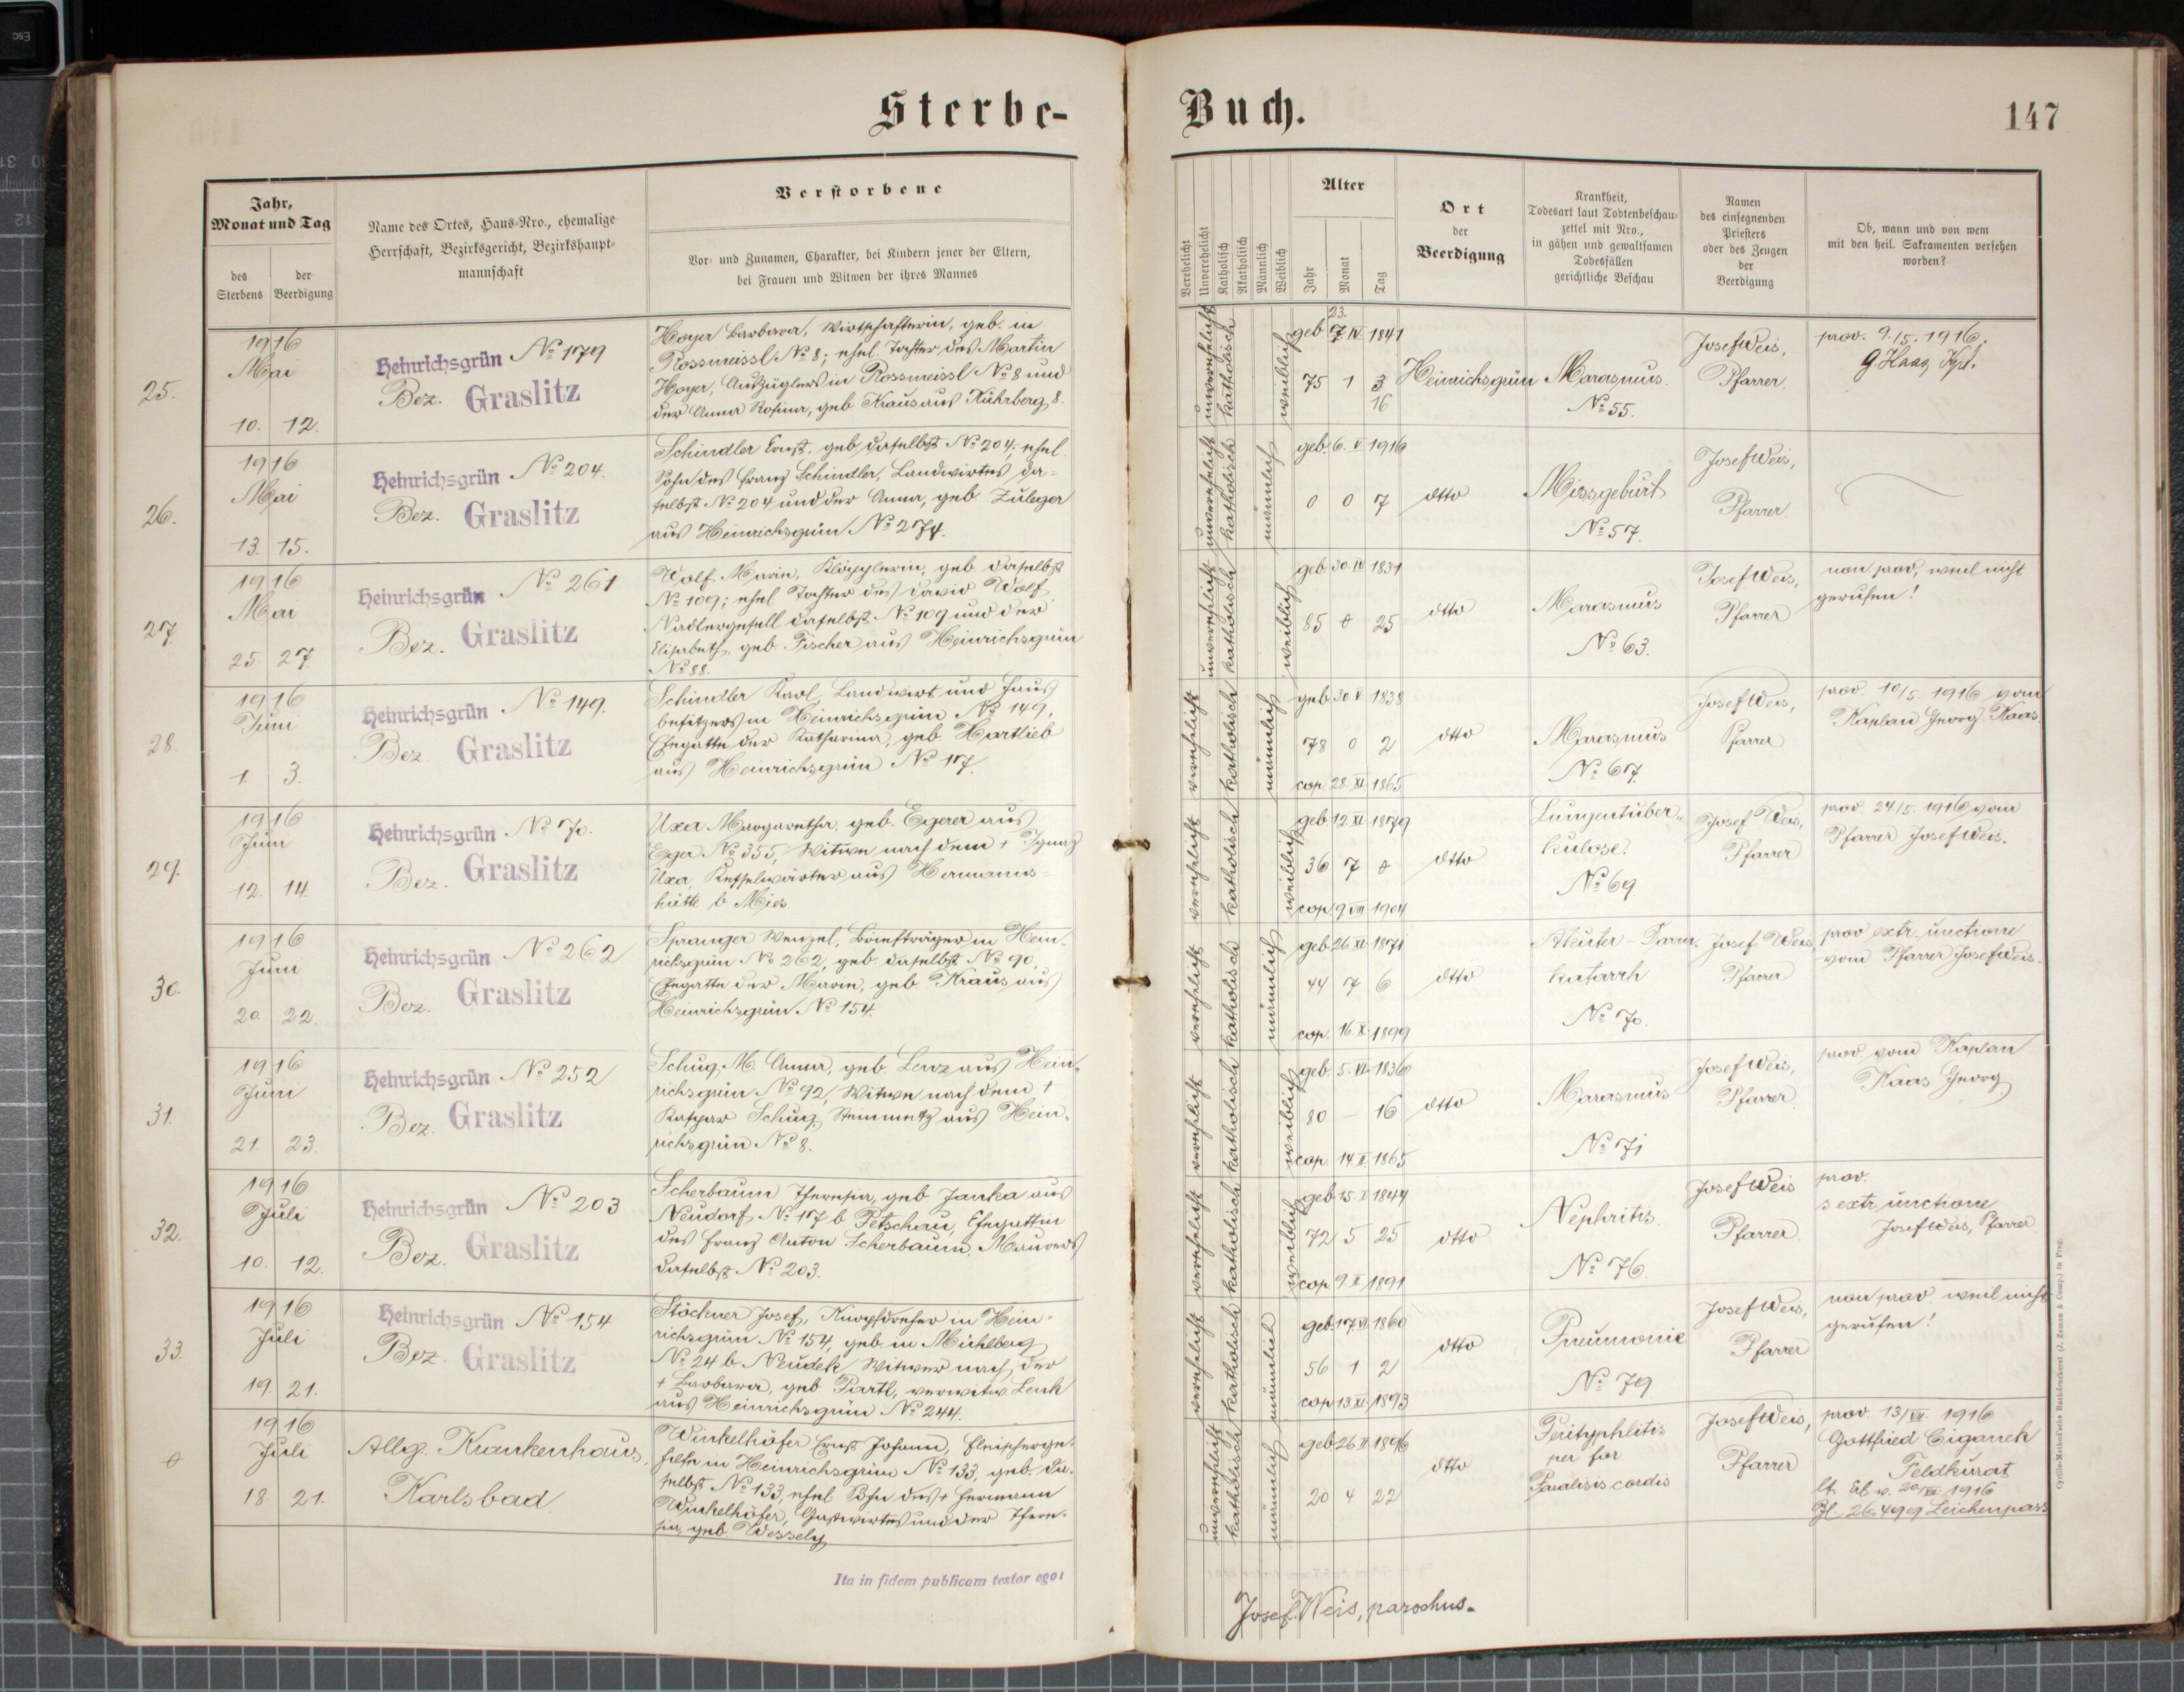 Sterbe-
Buch.
147
Jahr,
Monat und Tag
des
Sterbens
der
Beerdigung
Name des Ortes, Haus-Nro., ehemalige
Herrschaft, Bezirksgericht, Bezirkshaupt-
mannschaft
Verstorbene
Vor- und Zunamen, Charakter, bei Kindern jener der Eltern,
bei Frauen und Witwen der ihres Mannes
Verehelicht
Unverehelicht
Katholisch
Akatholisch
Männlich
Weiblich
Alter
Jahr
Monat
Tag
Ort
der
Beerdigung
Krankheit,
Todesart laut Todtenbeschau-
zettel mit Nro.,
in gähen und gewaltsamen
Todesfällen
gerichtliche Beschau
Namen
des einsegnenden
Priesters
oder des Zeugen
der
Beerdigung
Ob, wann und von wem
mit den heil. Sakramenten versehen
worden?
25.
1916
Mai
10. 12.
Heinrichsgrün No 179
Bez. Graslitz
Hoyer Barbara, Wirtschafterin, geb. in
Rossmeissl No 8; ehel. Tochter des Martin
Hoyer, Auszüglers in Rossmeissl No 8 und
der Anna Rosina, geb. Kraus aus Kührberg 8.
unverehelicht
katholisch
weiblich
23.
geb. 7 IV. 1841
75 1 3
16
Heinrichsgrün
Marasmus.
No 55.
Josef Weis,
Pfarrer
prov. 9/5. 1916.
G. Haas, Kpl.
26.
1916
Mai
13. 15.
Heinrichsgrün No 204.
Bez. Graslitz
Schindler Ernst, geb. daselbst No 204; ehel.
Sohn des Franz Schindler, Landwirtes da-
selbst No 204 und der Anna, geb. Zuleger
aus Heinrichsgrün No 274.
unverehelicht
katholisch
männlich
geb. 6. V. 1916
0 0 7
dtto
Missgeburt
No 57.
Josef Weis,
Pfarrer
27.
1916
Mai
25. 27.
Heinrichsgrün No 261
Bez. Graslitz
Wolf Marie, Klöpplerin, geb. daselbst
No 109; ehel. Tochter des David Wolf,
Nadlergesell daselbst No 109 und der
Elisabeth, geb. Fischer aus Heinrichsgrün
No 88.
unverehelicht
katholisch
weiblich
geb. 30. IV. 1831
85 0 25
dtto
Marasmus
No 63.
Josef Weis,
Pfarrer
non prov., weil nicht
gerufen!
28.
1916
Juni
1. 3.
Heinrichsgrün No 149.
Bez. Graslitz
Schindler Karl, Landwirt und Haus
besitzers in Heinrichsgrün No 149,
Ehegatte der Katharina, geb. Hartlieb
aus Heinrichsgrün No 17.
verehelicht
katholisch
männlich
geb. 30. V. 1838
78 0 2
cop. 28. XI. 1865
dtto
Marasmus
No 67.
Josef Weis,
Pfarrer
prov. 10/5. 1916 vom
Kaplan Georg Haas.
29.
1916
Juni
12. 14.
Heinrichsgrün No 70.
Bez. Graslitz
Uxa Margaretha, geb. Egerer aus
Eger No 355, Witwe nach dem + Ignaz
Uxa, Kesselwärter aus Hermanns-
hütte b. Mies.
verehelicht
katholisch
weiblich
geb. 12. XI. 1879
36 7 0
cop. 9. VIII. 1904
dtto
Lungentuber-
kulose.
No 69
Josef Weis,
Pfarrer
prov. 24/5. 1916 vom
Pfarrer Josef Weis.
30.
1916
Juni
20. 22.
Heinrichsgrün No 262
Bez. Graslitz
Spranger Wenzel, Briefträger in Hein-
richsgrün No 262, geb. daselbst No 90,
Ehegatte der Marie, geb. Kraus aus
Heinrichsgrün No 154.
verehelicht
katholisch
männlich
geb. 26. XI. 1871
44 7 6
cop. 16. X. 1899
dtto
Akuter-Darm-
katarrh
No 70.
Josef Weis
Pfarrer
prov. extr. unctione
vom Pfarrer Josef Weis.
31.
1916
Juni
21. 23.
Heinrichsgrün No 252
Bez. Graslitz
Schug M. Anna, geb. Lenz aus Hein-
richsgrün No 92, Witwe nach dem +
Kaspar Schug, Steinmetz aus Hein-
richsgrün No 8.
verehelicht
katholisch
weiblich
geb. 5. VI. 1836
80 – 16
cop. 14. II. 1865
dtto
Marasmus
No 71
Josef Weis,
Pfarrer
prov. vom Kaplan
Haas Georg
32.
1916
Juli
10. 12.
Heinrichsgrün No 203
Bez. Graslitz
Scherbaum Theresia, geb. Janka aus
Neudorf No 17 b. Petschau, Ehegattin
des Franz Anton Scherbaum, Maurers
daselbst No 203.
verehelicht
katholisch
weiblich
geb. 15. I. 1844
72 5 25
cop. 9. II. 1891
dtto
Nephritis.
No 76.
Josef Weis
Pfarrer
prov.
s. extr. unctione
Josef Weis, Pfarrer
33.
1916
Juli
19. 21.
Heinrichsgrün No 154
Bez. Graslitz
Stöckner Josef, Knopfdreher in Hein-
richsgrün No 154, geb. in Mühlberg
No 24 b. Neudek, Witwer nach der
+ Barbara, geb. Partl, verwitw. Lenk
aus Heinrichsgrün No 244.
verehelicht
katholisch
männlich
geb. 17. VI. 1860
56 1 2
cop. 13. XI. 1893
dtto
Pneumonie
No 79
Josef Weis,
Pfarrer
non prov. weil nicht
gerufen!
0
1916
Juli
18 21.
Allg. Krankenhaus,
Karlsbad
Winkelhöfer Ernst Johann, Fleischerge-
hilfe in Heinrichsgrün No 133, geb. da-
selbst No 133, ehel. Sohn des + Hermann
Winkelhöfer, Gastwirtes und der There-
sia, geb. Wessely
unverehelicht
katholisch
männlich
geb. 26. II. 1896
20 4 22
dtto
Perityphlitis
per for
Paralisis cordis
Josef Weis,
Pfarrer
prov. 13/VII. 1916
Gottfried Ciganek
Feldkurat
Zl. 26.499 Leichenpass
Ita in fidem publicam testor ego:
Josef Weis, parochus.